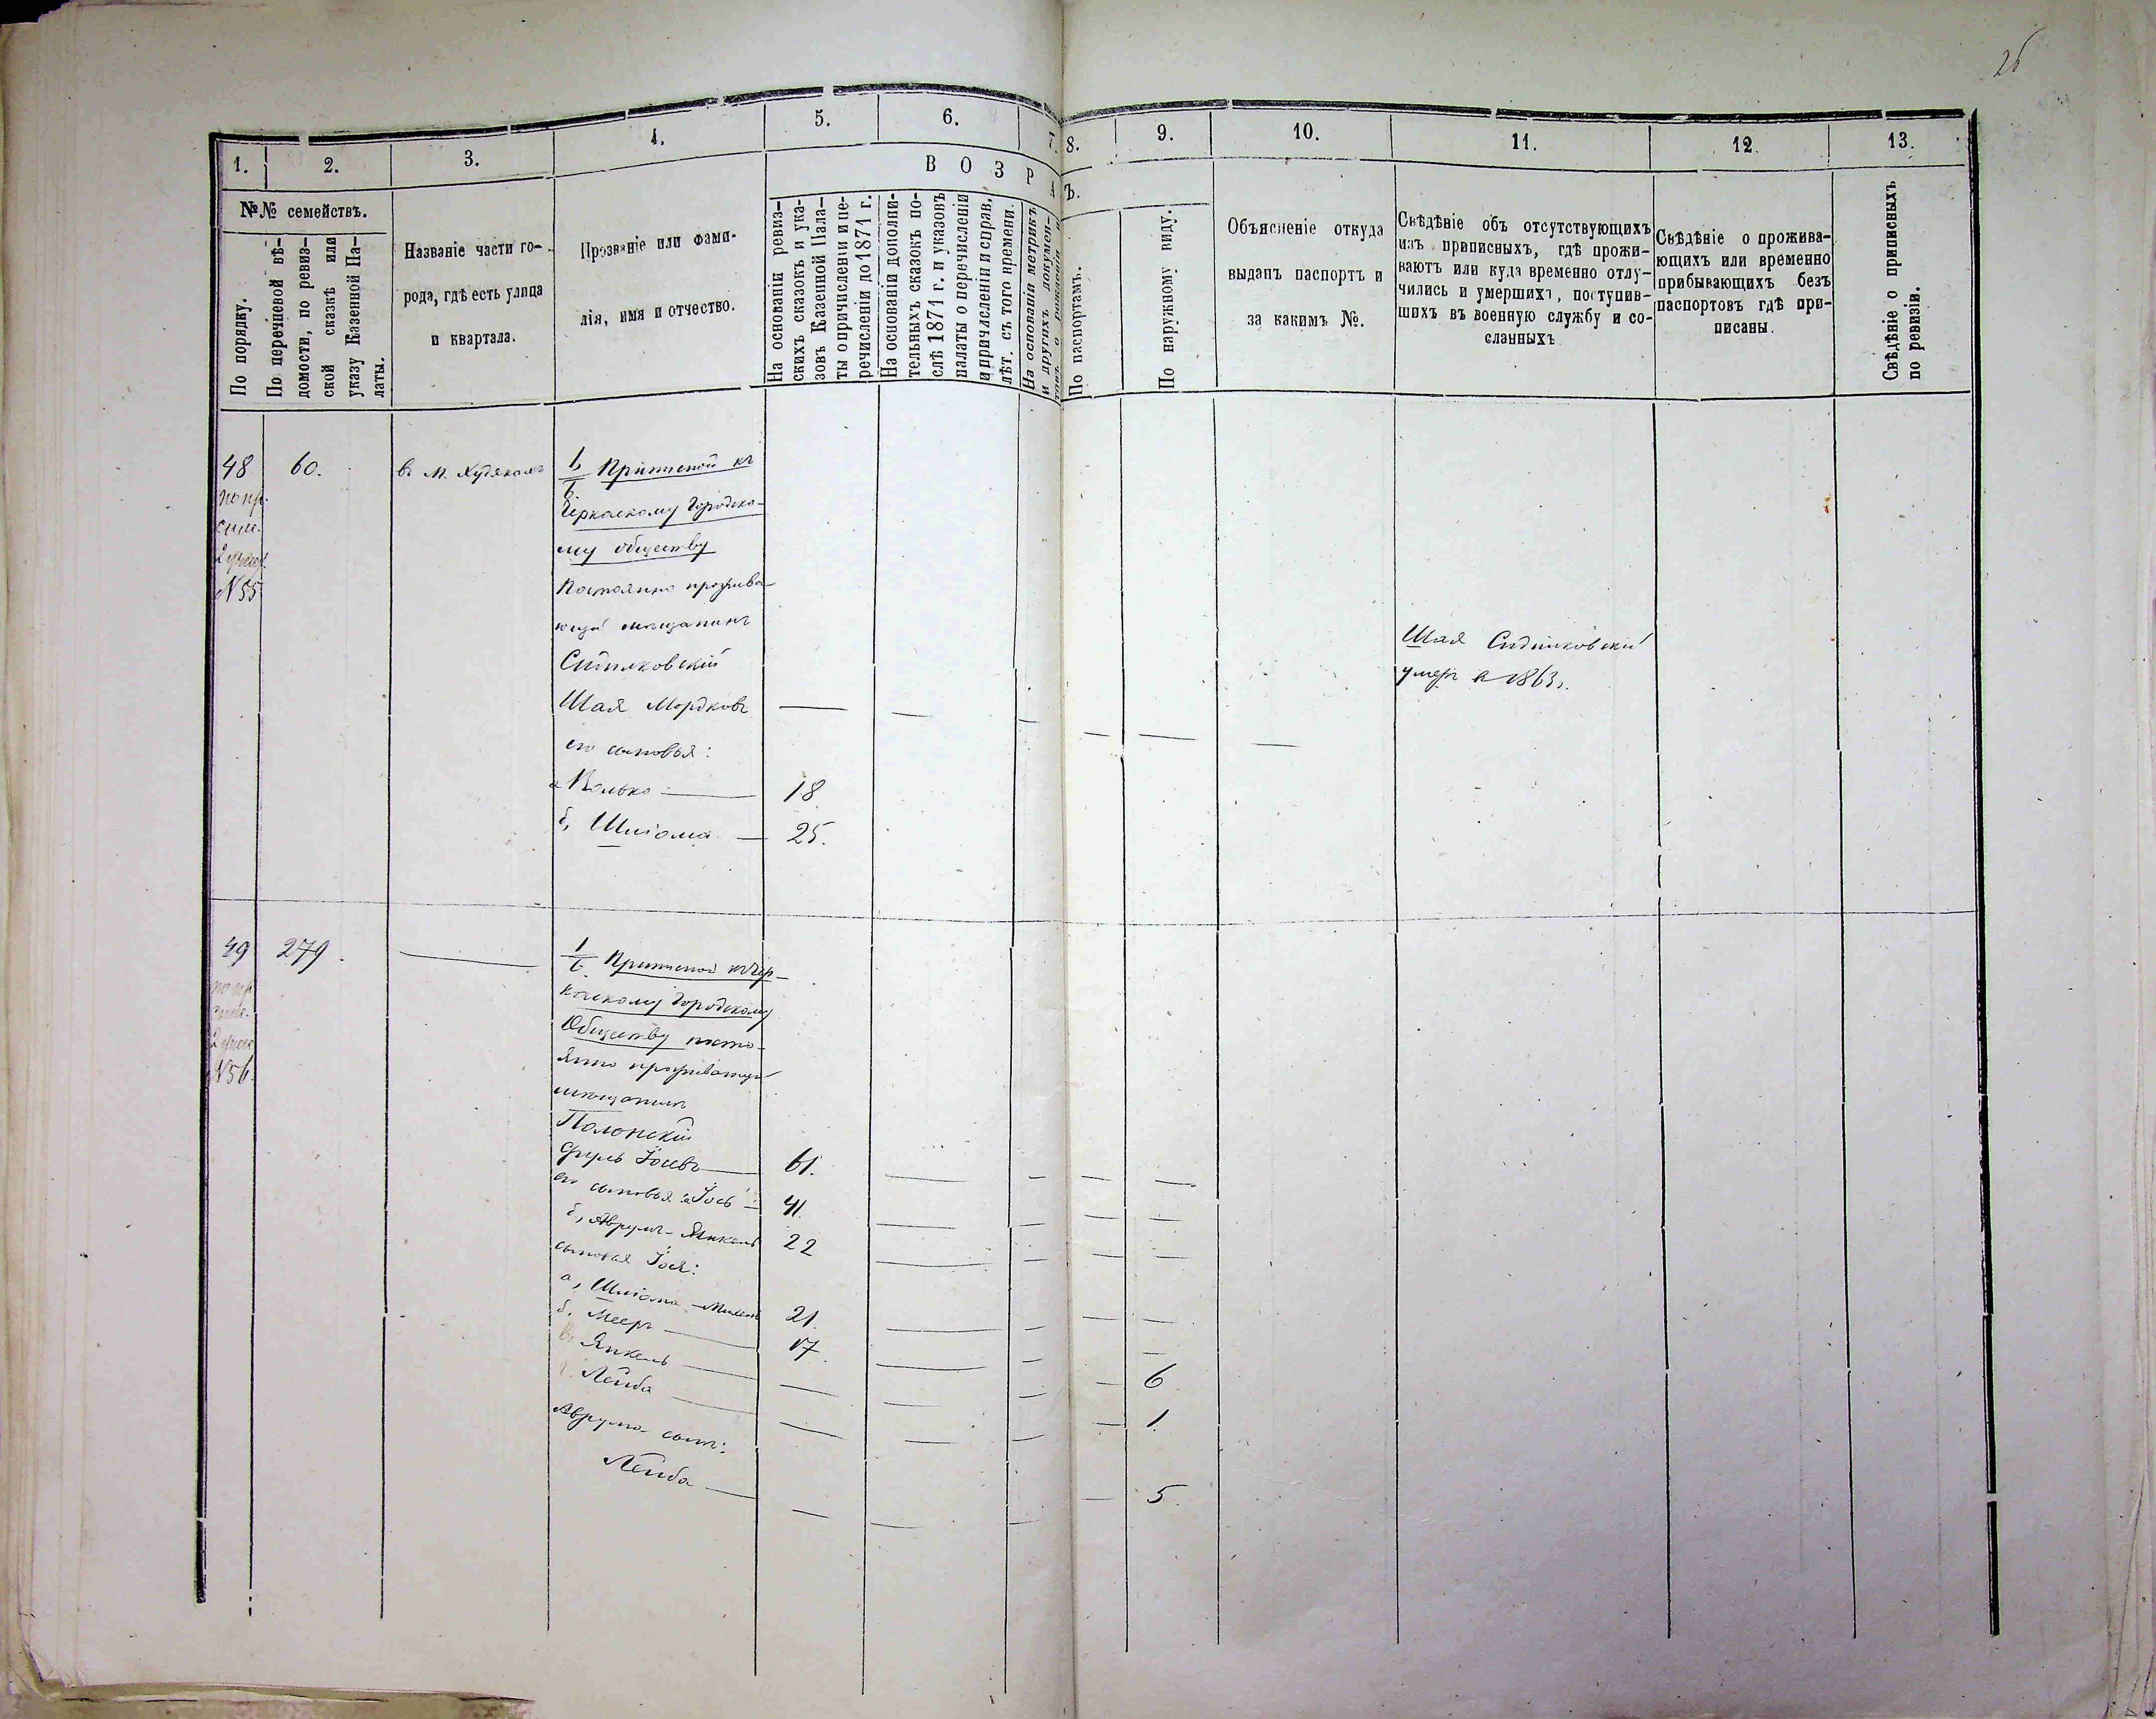 26
1.
2.
3.
4.
5.
6.
7.
8.
9.
10.
11.
12.
13.
ВОЗРА
Ъ.
№№ семействъ.
По порядку.
По перечневой вѣ-
домости, по ревиз-
ской сказкѣ или
указу Казенной Па-
латы.
Названіе части го-
рода, гдѣ есть улица
и квартала.
Прозваніе или фами-
лія, имя и отчество.
На основаніи ревиз-
скихъ сказокъ и ука-
зовъ Казенной Пала-
ты о причисленіи и пе-
речисленіи до 1871 г.
На основаніи дополни-
тельныхъ сказокъ по-
слѣ 1871 г. и указовъ
палаты о перечисленіи
и причисленіи и справ.
лѣт. съ того времени.
На основаніи метрикъ
и другихъ докумен-
товъ о рожденіи и
По паспортамъ.
По наружному виду.
Объясненіе откуда
выданъ паспортъ и
за какимъ №.
Свѣдѣніе объ отсутствующихъ
изъ приписныхъ, гдѣ прожи-
ваютъ или куда временно отлу-
чились и умершихъ, поступив-
шихъ въ военную службу и со-
сланныхъ
Свѣдѣніе о прожива-
ющихъ или временно
прибывающихъ безъ
паспортовъ гдѣ при-
писаны.
Свѣдѣніе о приписныхъ
по ревизіи.
48
60.
в. М. Худякахъ
Приписной къ
Черкаскому Городско-
му обществу
Постоянно прожива-
ющій мѣщанинъ
Сидиковскій
Шая Мордковъ
его сыновья:
а Волько — 18
б, Шліома — 25.
№55
Шая Сидиковскій
умеръ в 1863 г.
49
279.
Приписной къ Чер-
каскому Городскому
Обществу посто-
янно проживающій
мѣщанинъ
Полонскій
Фуль Іосевъ — 61.
его сыновья: а Іось — 41
б, Аврумъ-Янкель 22
сыновья Іося:
а, Шліома-Михель 21
б. Мееръ — 17.
в, Янкель — 6
Лейба — 1.
Аврума сынъ:
Лейба — 5.
№56.